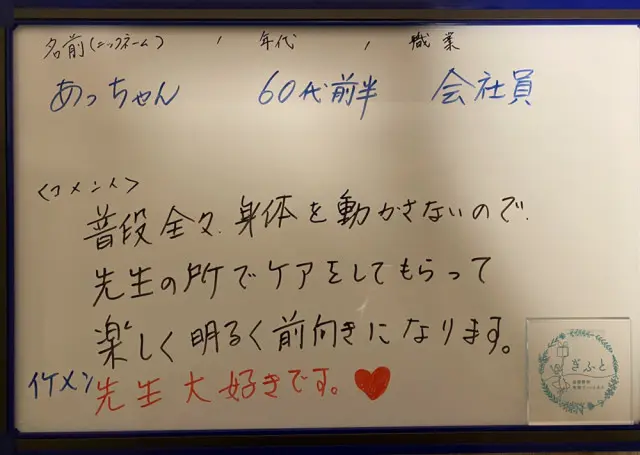 名前(ニックネーム) , 年代 , 職業
あっちゃん 60代前半 会社員
<コメント>
普段全々、身体を動かさないので、
先生の所でケアをしてもらって
楽しく明るく前向きになります。
イケメン先生大好きです。♥
ぎふと